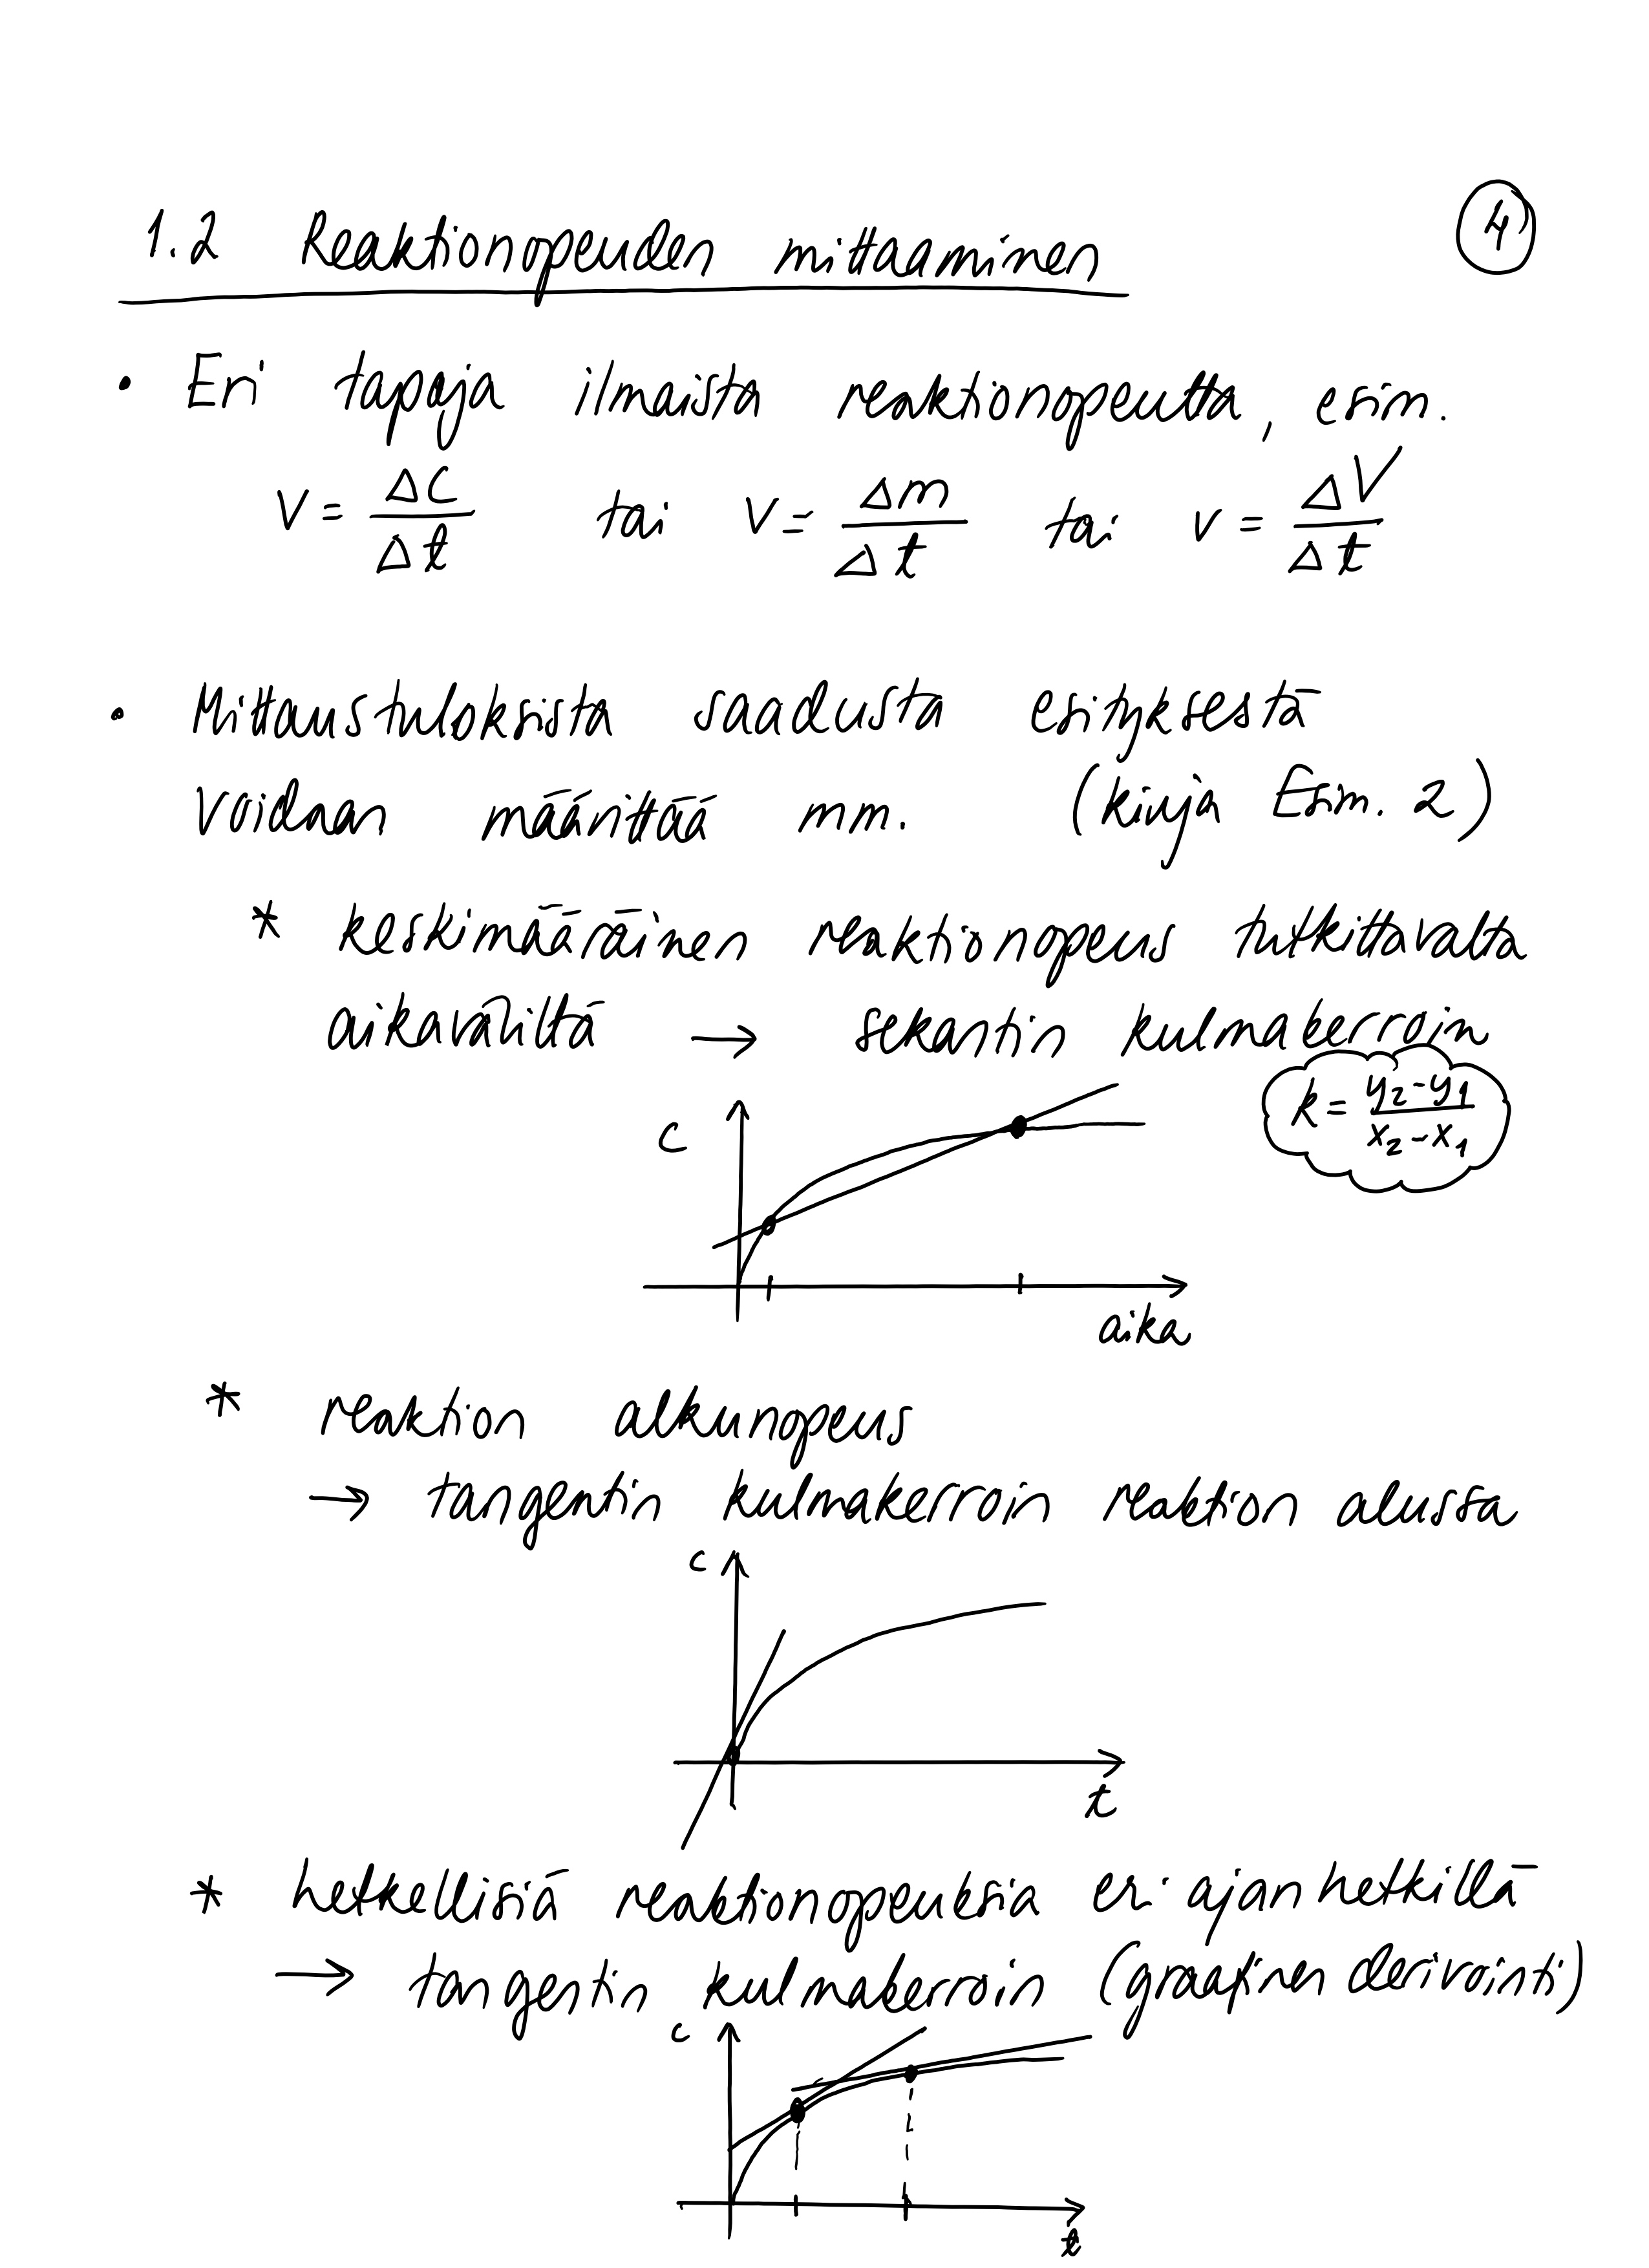 1.2 Reaktionopeuden mittaaminen
4
• Eri tapoja ilmaista reaktionopeutta, esim.
V = Δc/Δt tai V = Δm/Δt tai v = ΔV/Δt
• Mittaustuloksista saadusta esityksestä
voidaan määrittää mm. (kirja Esim. 2)
* keskimääräinen reaktionopeus tutkittavalta
aikaväliltä → sekantin kulmakerroin
k = y₂-y₁/x₂-x₁
c
aika
* reaktion alkunopeus
→ tangentin kulmakerroin reaktion alussa
c
t
* hetkellisiä reaktionopeuksia eri ajanhetkillä
→ tangentin kulmakerroin (graafinen derivointi)
c
t